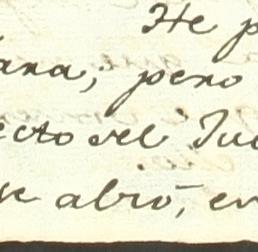 He p
ana; pero
ecto del Jue
se abró, en